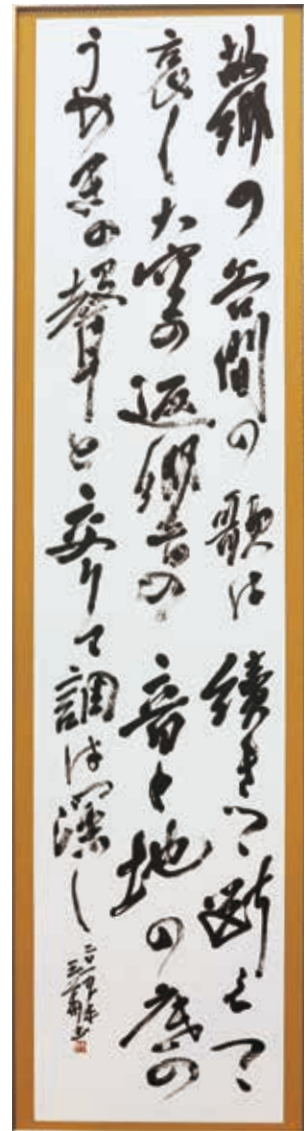 故郷の谷間の歌は續きつゝ断えつゝ
哀し大空の返響の音と地の底の
うめきの聲と交りて調は深し